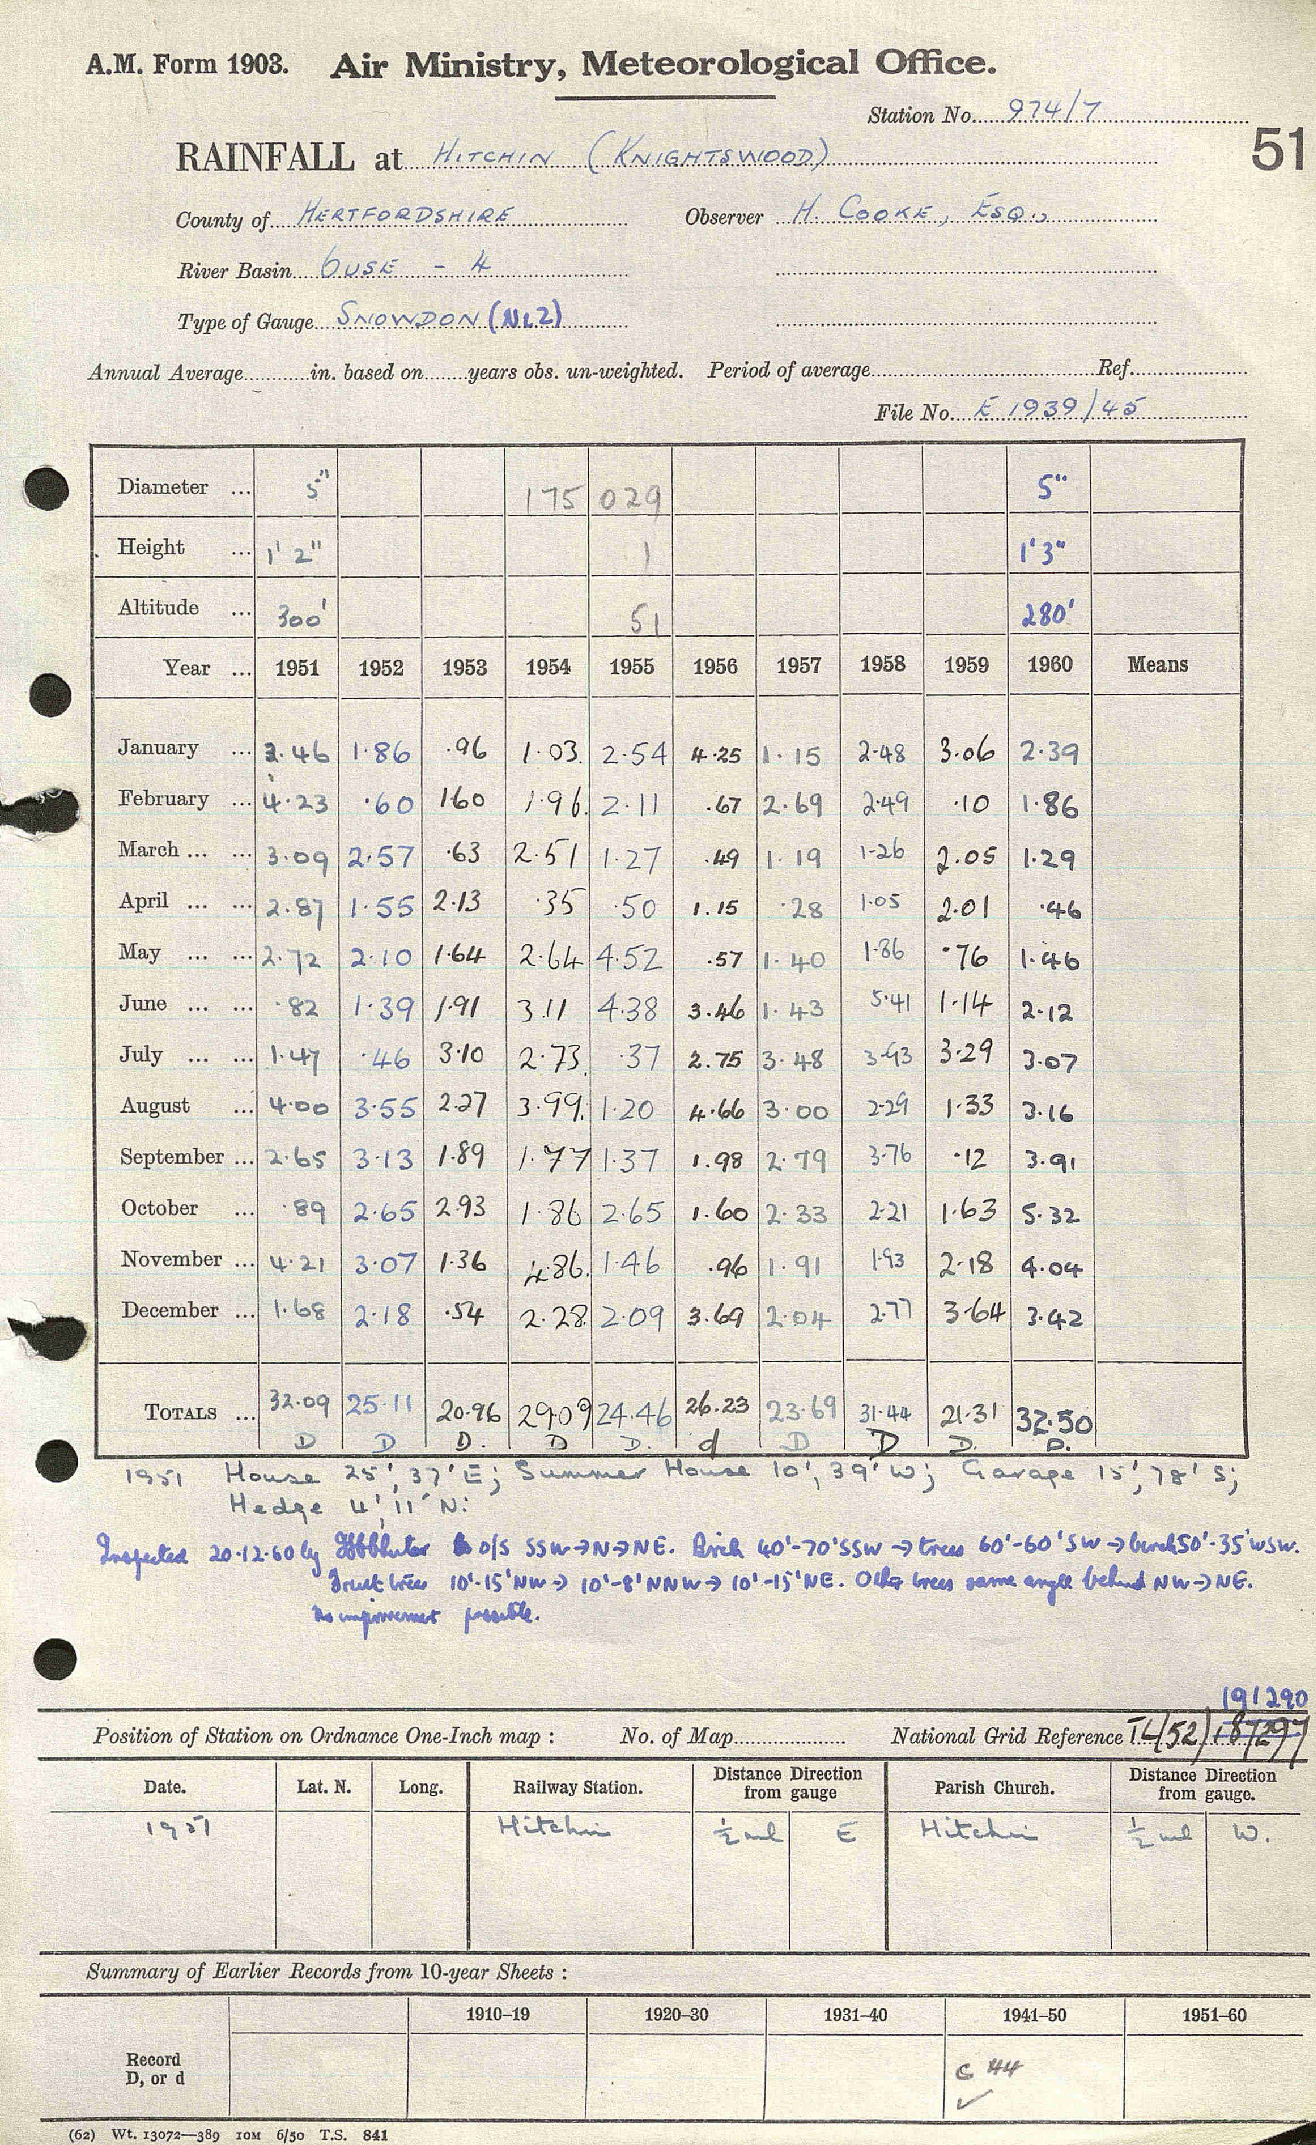 A.M. Form 1903. Air Ministry, Meteorological Office.
Station No. 974/7
51
RAINFALL at HITCHIN (KNIGHTSWOOD)
County of HERTFORDSHIRE Observer H. COOKE, ESQ.,
River Basin OUSE - 4
Type of Gauge SNOWDON (Nl2)
Annual Average in. based on years obs. un-weighted. Period of average Ref.
File No. E 1939/45
Diameter ... 5" 175 029 5"
Height ... 1' 2" 1 1'3"
Altitude ... 300' 51 280'
Year ... 1951 1952 1953 1954 1955 1956 1957 1958 1959 1960 Means
January ... 3.46 1.86 .96 1.03 2.54 4.25 1.15 2.48 3.06 2.39
February ... 4.23 .60 1.60 1.96 2.11 .67 2.69 2.49 .10 1.86
March ... ... 3.09 2.57 .63 2.51 1.27 .49 1.19 1.26 2.05 1.29
April ... ... 2.87 1.55 2.13 .35 .50 1.15 .28 1.05 2.01 .46
May ... ... 2.72 2.10 1.64 2.64 4.52 .57 1.40 1.86 .76 1.46
June ... ... .82 1.39 1.91 3.11 4.38 3.46 1.43 5.41 1.14 2.12
July ... ... 1.47 .46 3.10 2.73 .37 2.75 3.48 3.93 3.29 3.07
August ... 4.00 3.55 2.27 3.99 1.20 4.66 3.00 2.29 1.33 3.16
September ... 2.65 3.13 1.89 1.77 1.37 1.98 2.79 3.76 .12 3.91
October ... .89 2.65 2.93 1.86 2.65 1.60 2.33 2.21 1.63 5.32
November ... 4.21 3.07 1.36 4.86 1.46 .96 1.91 1.93 2.18 4.04
December ... 1.68 2.18 .54 2.28 2.09 3.69 2.04 2.77 3.64 3.42
TOTALS ... 32.09 25.11 20.96 29.09 24.46 26.23 23.69 31.44 21.31 32.50
D D D. D D. d D D D. D.
1951 House 25', 37' E; Summer House 10', 39' W; Garage 15', 78' S;
Hedge 4', 11' N:
Inspected 20.12.60 by O/S SSW→N→NE. Birch 40'-70'SSW → trees 60'-60'SW → birch 50'-35'WSW.
Fruit trees 10'-15'NW → 10'-8'NNW → 10'-15'NE. Other trees same angle behind NW→NE.
No improvement possible.
191290
Position of Station on Ordnance One-Inch map : No. of Map National Grid Reference TL(52) 187297
Date. Lat. N. Long. Railway Station. Distance Direction from gauge Parish Church. Distance Direction from gauge.
1951 Hitchin ½ ml E Hitchin ½ ml W.
Summary of Earlier Records from 10-year Sheets :
1910–19 1920–30 1931–40 1941–50 1951–60
Record
D, or d
C 44
✓
(62) Wt. 13072—389 10M 6/50 T.S. 841